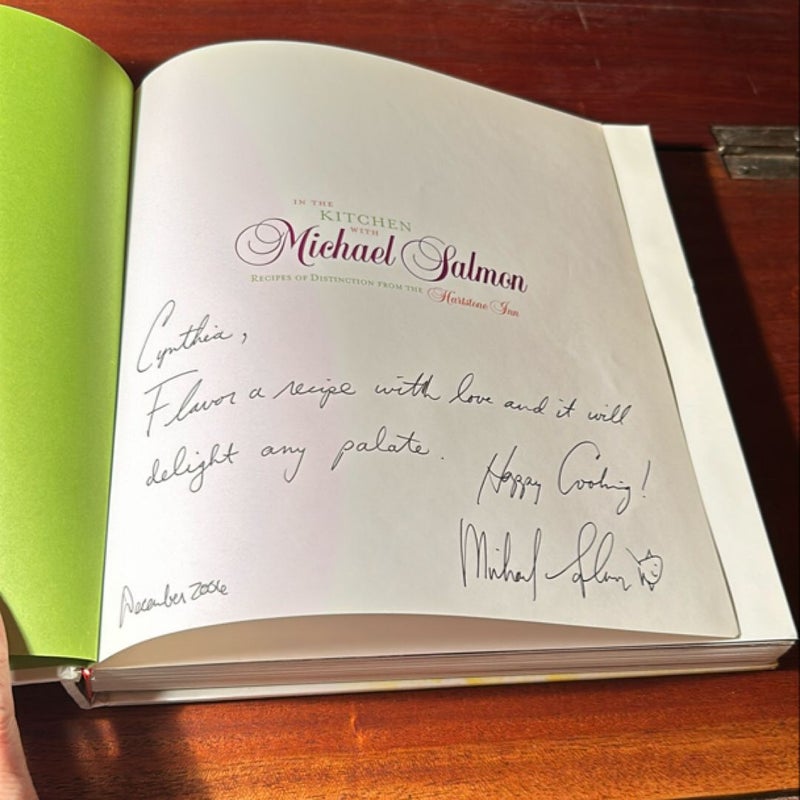 IN THE
KITCHEN
WITH
Michael Salmon
RECIPES OF DISTINCTION FROM THE Hartstone Inn
Cynthia,
Flavor a recipe with love and it will
delight any palate.
Happy Cooking!
Michael Salmon
December 2006